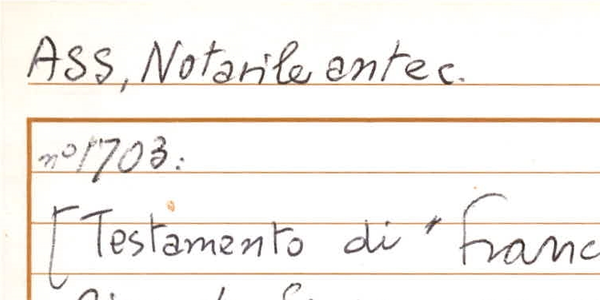 ASS, Notarile antec.
nº 1703:
[Testamento di "Franc